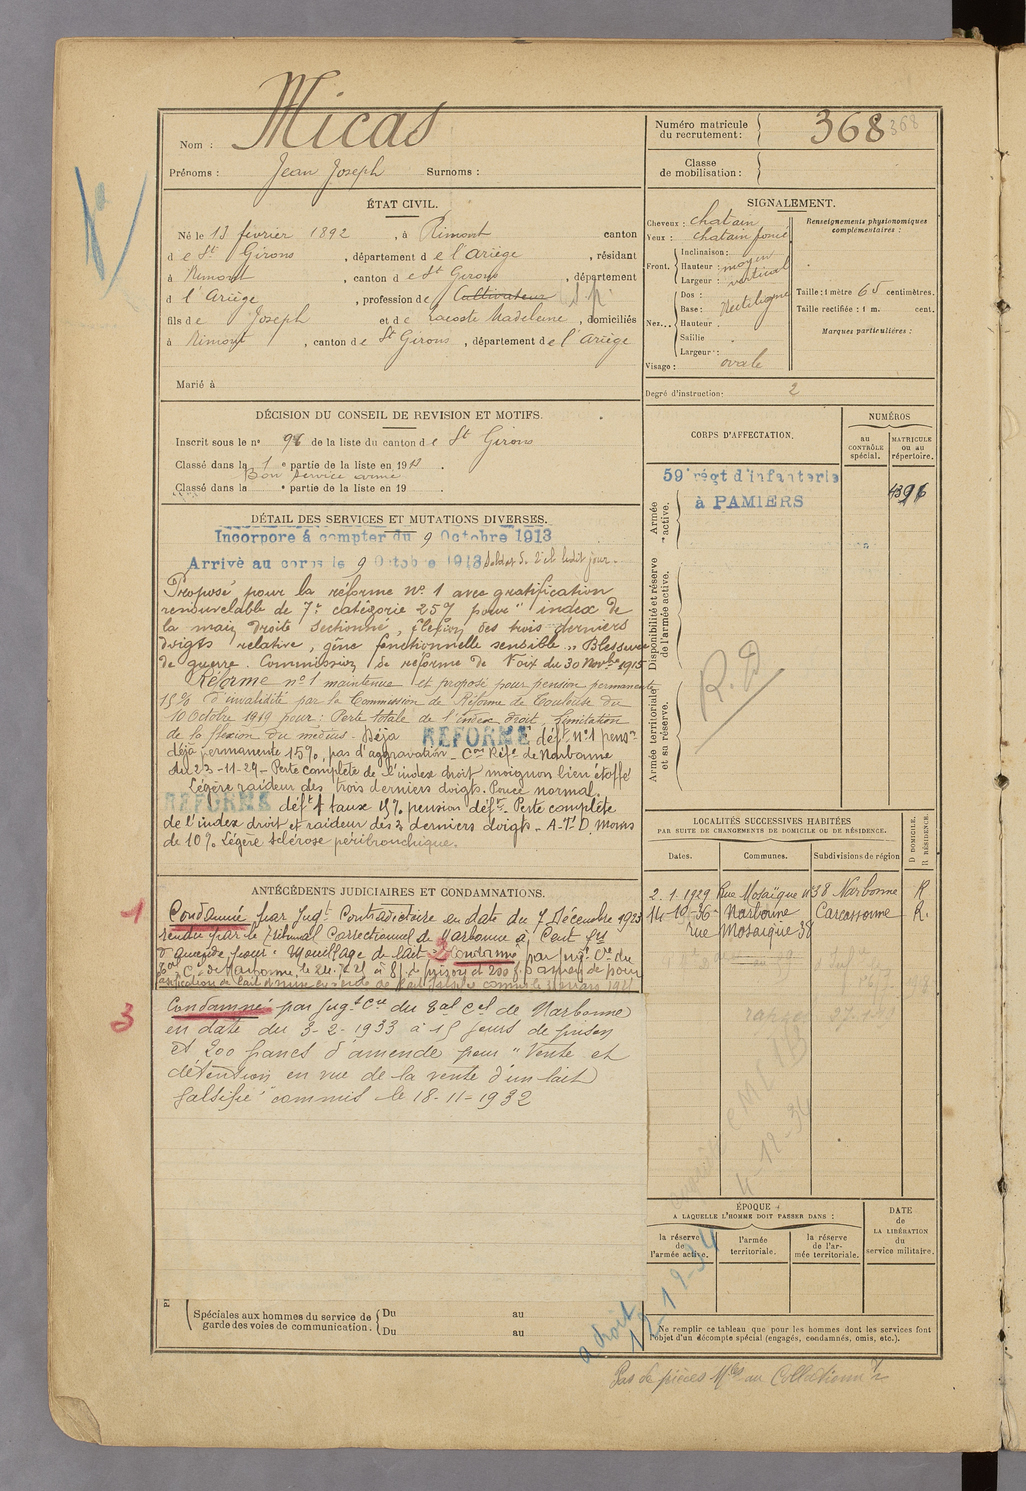 Nom : Micas
Prénoms : Jean Joseph Surnoms :
Numéro matricule du recrutement : 368 368
Classe de mobilisation :
ÉTAT CIVIL.
Né le 13 février 1892, à Rimont canton
de St Girons, département de l'Ariège, résidant
à Rimont, canton de St Girons, département
d l'Ariège, profession de Cultivateur
fils de Joseph et de Lacoste Madeleine, domiciliés
à Rimont, canton de St Girons, département de l'Ariège
Marié à
SIGNALEMENT.
Cheveux : chatain
Yeux : chatain foncé
Front.
Inclinaison :
Hauteur : moyen
Largeur : vertical
Nez...
Dos : Rectiligne
Base :
Hauteur .
Saillie .
Largeur :
Visage : ovale
Renseignements physionomiques complémentaires :
Taille : 1 mètre 65 centimètres.
Taille rectifiée : 1 m. cent.
Marques particulières :
Degré d'instruction : 2
DÉCISION DU CONSEIL DE REVISION ET MOTIFS.
Inscrit sous le n° 96 de la liste du canton de St Girons
Classé dans la 1e partie de la liste en 1913.
Bon service armé
Classé dans la e partie de la liste en 19 .
CORPS D'AFFECTATION.
NUMÉROS
au CONTRÔLE spécial.
MATRICULE ou au répertoire.
Armée active.
59e régt d'infanterie
à PAMIERS
Disponibilité et réserve de l'armée active.
Armée territoriale et sa réserve.
R. D
DÉTAIL DES SERVICES ET MUTATIONS DIVERSES.
Incorporé à compter du 9 Octobre 1913
Arrivé au corps le 9 Octobre 1913 Soldat de 2e cl ledit jour.
Proposé pour la réforme n° 1 avec gratification
renouvelable de 7e catégorie 257 pour " index de
la main droite sectionné, flexion des trois derniers
doigts relative, gêne fonctionnelle sensible " Blessure
de guerre. Commission de réforme de Foix du 30 Novbre 1915
Réforme n° 1 maintenue et proposé pour pension permanente
15% d'invalidité par la Commission de Réforme de Toulouse du
10 Octobre 1919 pour : Perte totale de l'index droit. Limitation
de la flexion du médius. Déjà REFORMÉ déft n° 1 pensn
déjà permanente 15%, pas d'aggravation - Con Réfe de Narbonne
du 23-11-29 - Perte complète de l'index droit moignon bien étoffé
Légère raideur des trois derniers doigts. Pouce normal.
REFORMÉ déft 1 taux 15% pension déft. Perte complète
de l'index droit et raideur des 3 derniers doigts - A.T. D. Moins
de 10% Légère sclérose péribronchique.
LOCALITÉS SUCCESSIVES HABITÉES
PAR SUITE DE CHANGEMENTS DE DOMICILE OU DE RÉSIDENCE.
Dates. Communes. Subdivisions de région D DOMICILE. R RÉSIDENCE.
2.1.1929 Rue Mosaïque n°38 Narbonne R
14-10-36 - Narbonne Carcassonne R.
rue Mosaïque 38
ANTÉCÉDENTS JUDICIAIRES ET CONDAMNATIONS.
1 Condamné par Jugt Contradictoire en date du 7 Décembre 1923
rendu par le Tribunal Correctionnel de Narbonne à Cent frs
d'amende pour " Mouillage de lait " 2 Condamné par Jugt Cre du
3 Condamné par Jugt Cre du Bal Cel de Narbonne
en date du 3-2-1933 à 15 jours de prison
et 200 francs d'amende pour " Vente et
détention en vue de la vente d'un lait
falsifié " commis le 18-11-1932
4-12-34
ÉPOQUE
A LAQUELLE L'HOMME DOIT PASSER DANS :
la réserve de l'armée active.
l'armée territoriale.
la réserve de l'armée territoriale.
DATE de LA LIBÉRATION du service militaire.
Spéciales aux hommes du service de garde des voies de communication.
Du au
Du au
a droit
12-12-34
Ne remplir ce tableau que pour les hommes dont les services font l'objet d'un décompte spécial (engagés, condamnés, omis, etc.).
Pas de pièces Mles au Collationnt